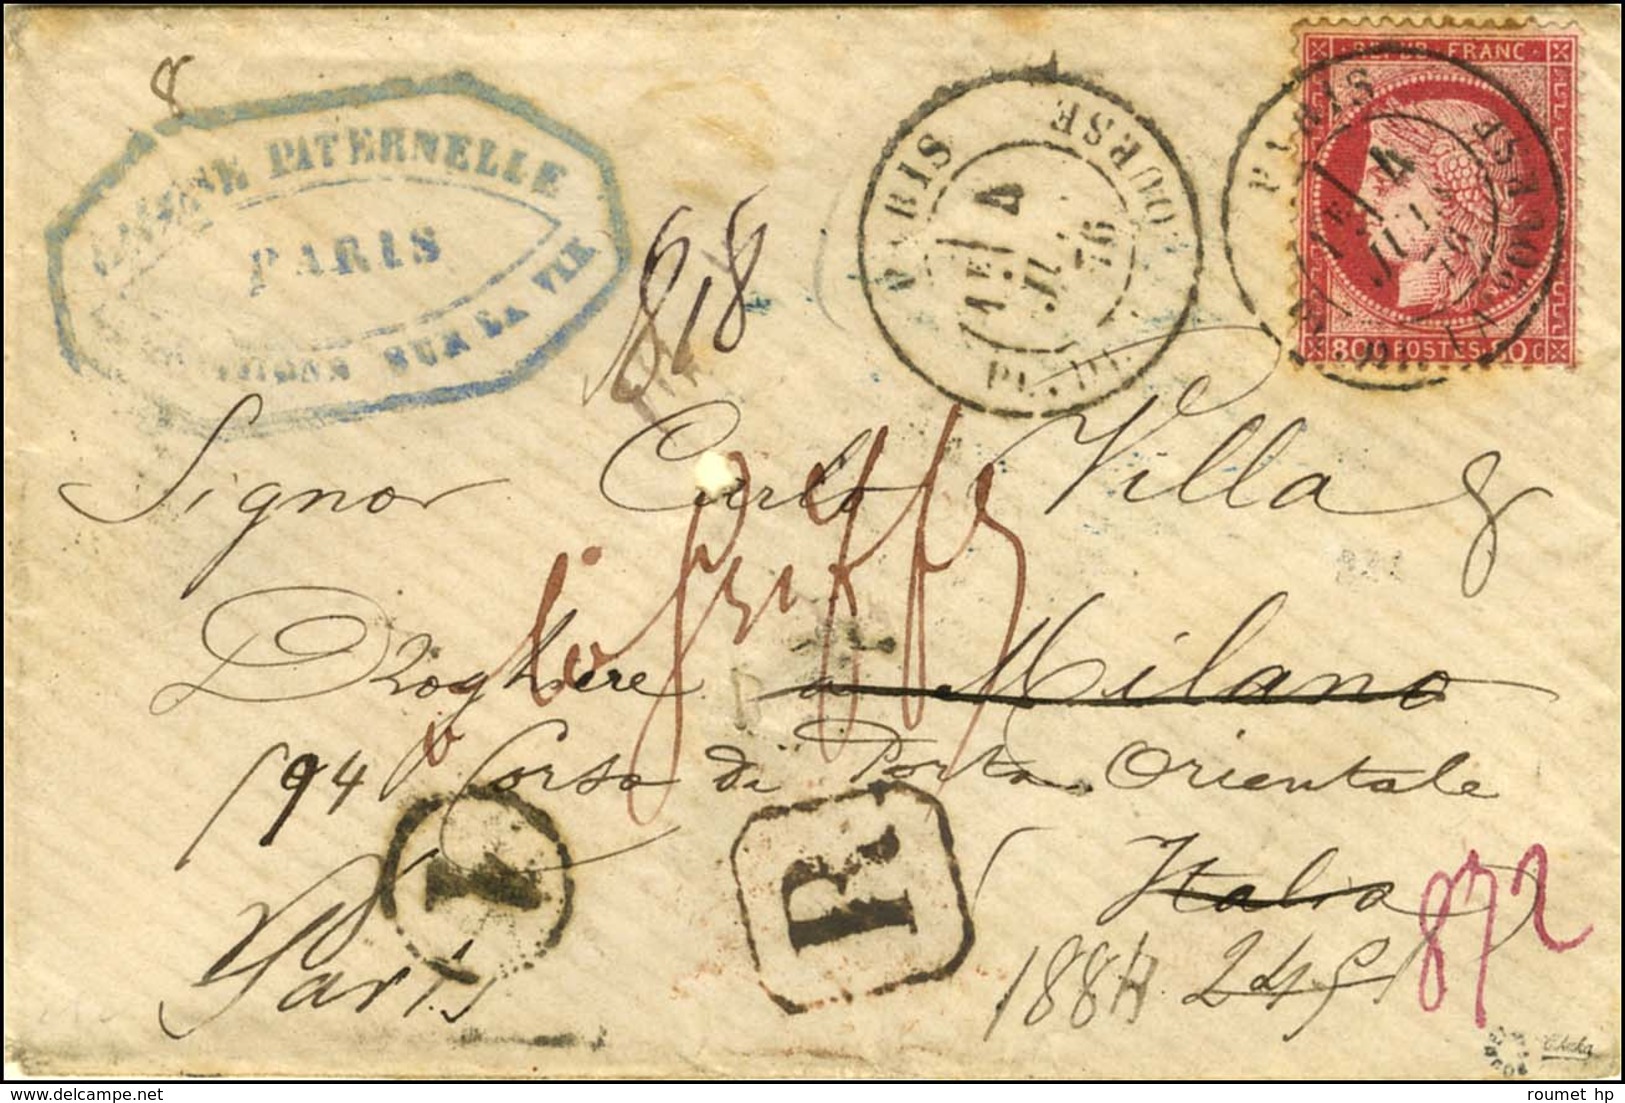 8
CAISSE PATERNELLE
PARIS
SUR LA VIE
818
PARIS
BOURSE
1 E/
4
JUIL
76
PL. DE LA
PARIS
PL. DE LA BOURSE
1 E/
4
JUIL
76
FRANC
80C POSTES 80C
Signor Carlo Villa &
Droghiere a Milano
194 Corso di Porta Orientale
Italia
Paris
1
R
1884
245
872
roumet hp